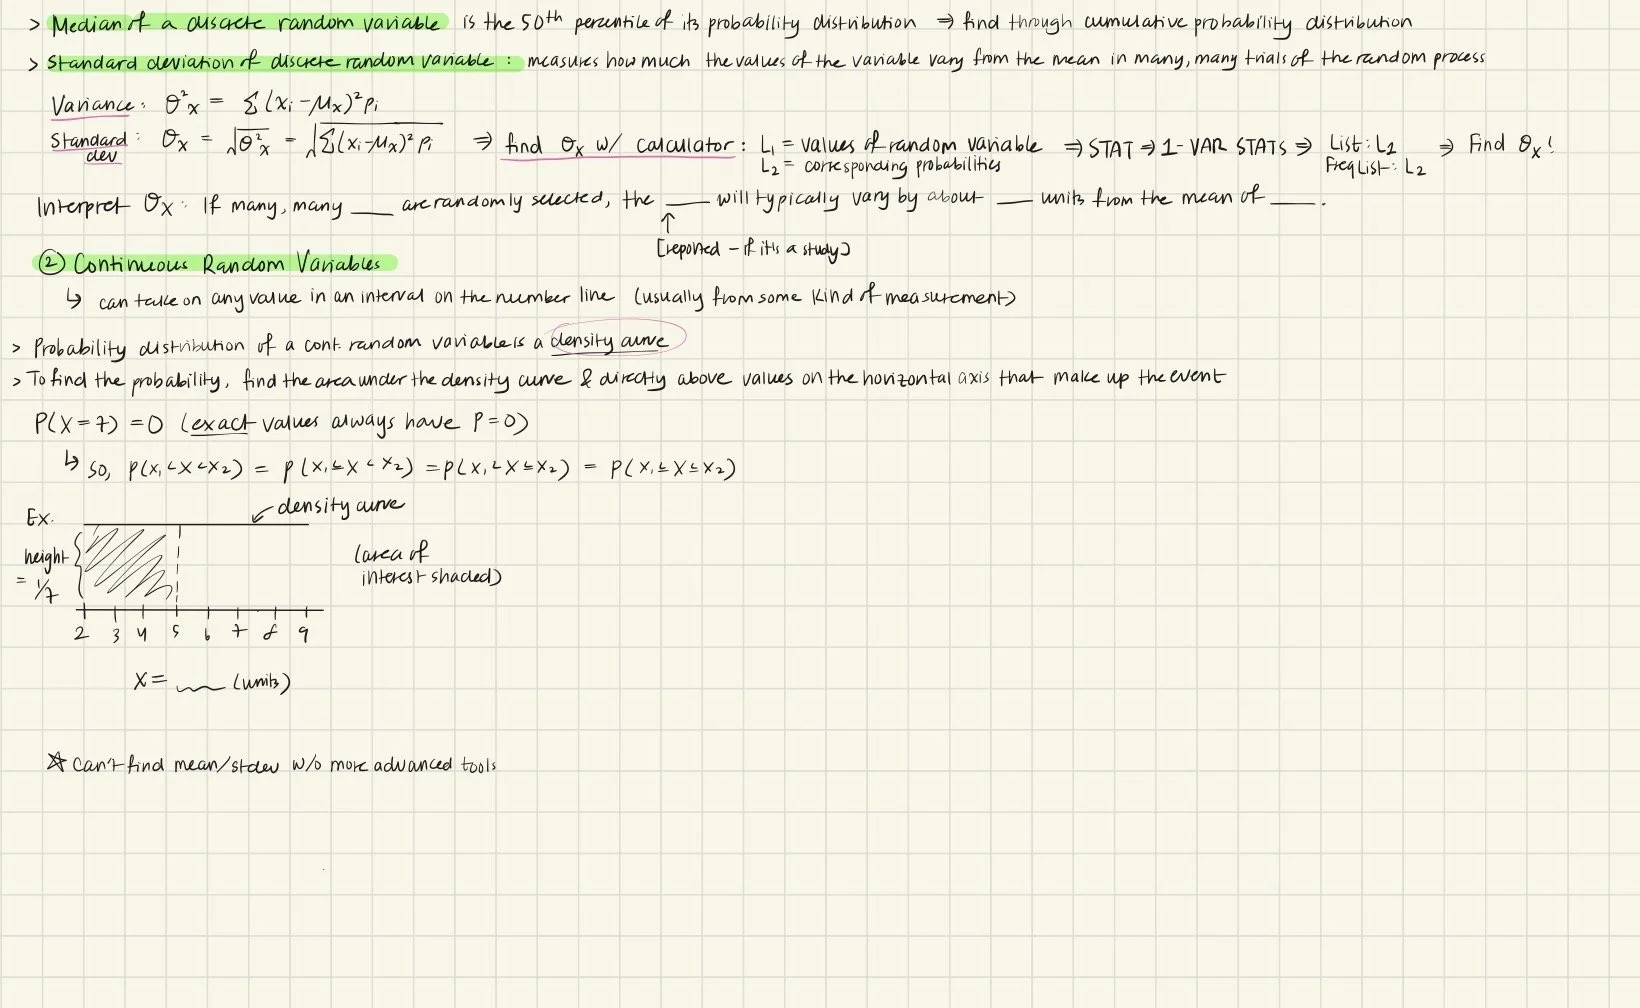 > Median of a discrete random variable is the 50th percentile of its probability distribution ⇒ find through cumulative probability distribution
> Standard deviation of discrete random variable : measures how much the values of the variable vary from the mean in many, many trials of the random process
Variance: θ²x = Σ(xi-μx)²pi
Standard dev : θx = √θ²x = √Σ(xi-μx)²pi ⇒ find θx w/ calculator : L1 = values of random variable ⇒ STAT → 1-VAR STATS ⇒ List: L1 ⇒ Find θx!
L2 = corresponding probabilities FreqList: L2
Interpret θx: If many, many ___ are randomly selected, the ___ will typically vary by about ___ units from the mean of ___.
↑
[reported - if it's a study]
② Continuous Random Variables
↳ can take on any value in an interval on the number line (usually from some kind of measurement)
> Probability distribution of a cont. random variable is a density curve
> To find the probability, find the area under the density curve & directly above values on the horizontal axis that make up the event
P(X=7) = 0 (exact values always have P=0)
↳ so, P(x1<X<x2) = P(x1≤X<x2) = P(x1<X≤x2) = P(x1≤X≤x2)
Ex. density curve
height = 1/7 (area of
interest shaded)
2 3 4 5 6 7 8 9
X = ___ (units)
☆ Can't find mean/stdev w/o more advanced tools